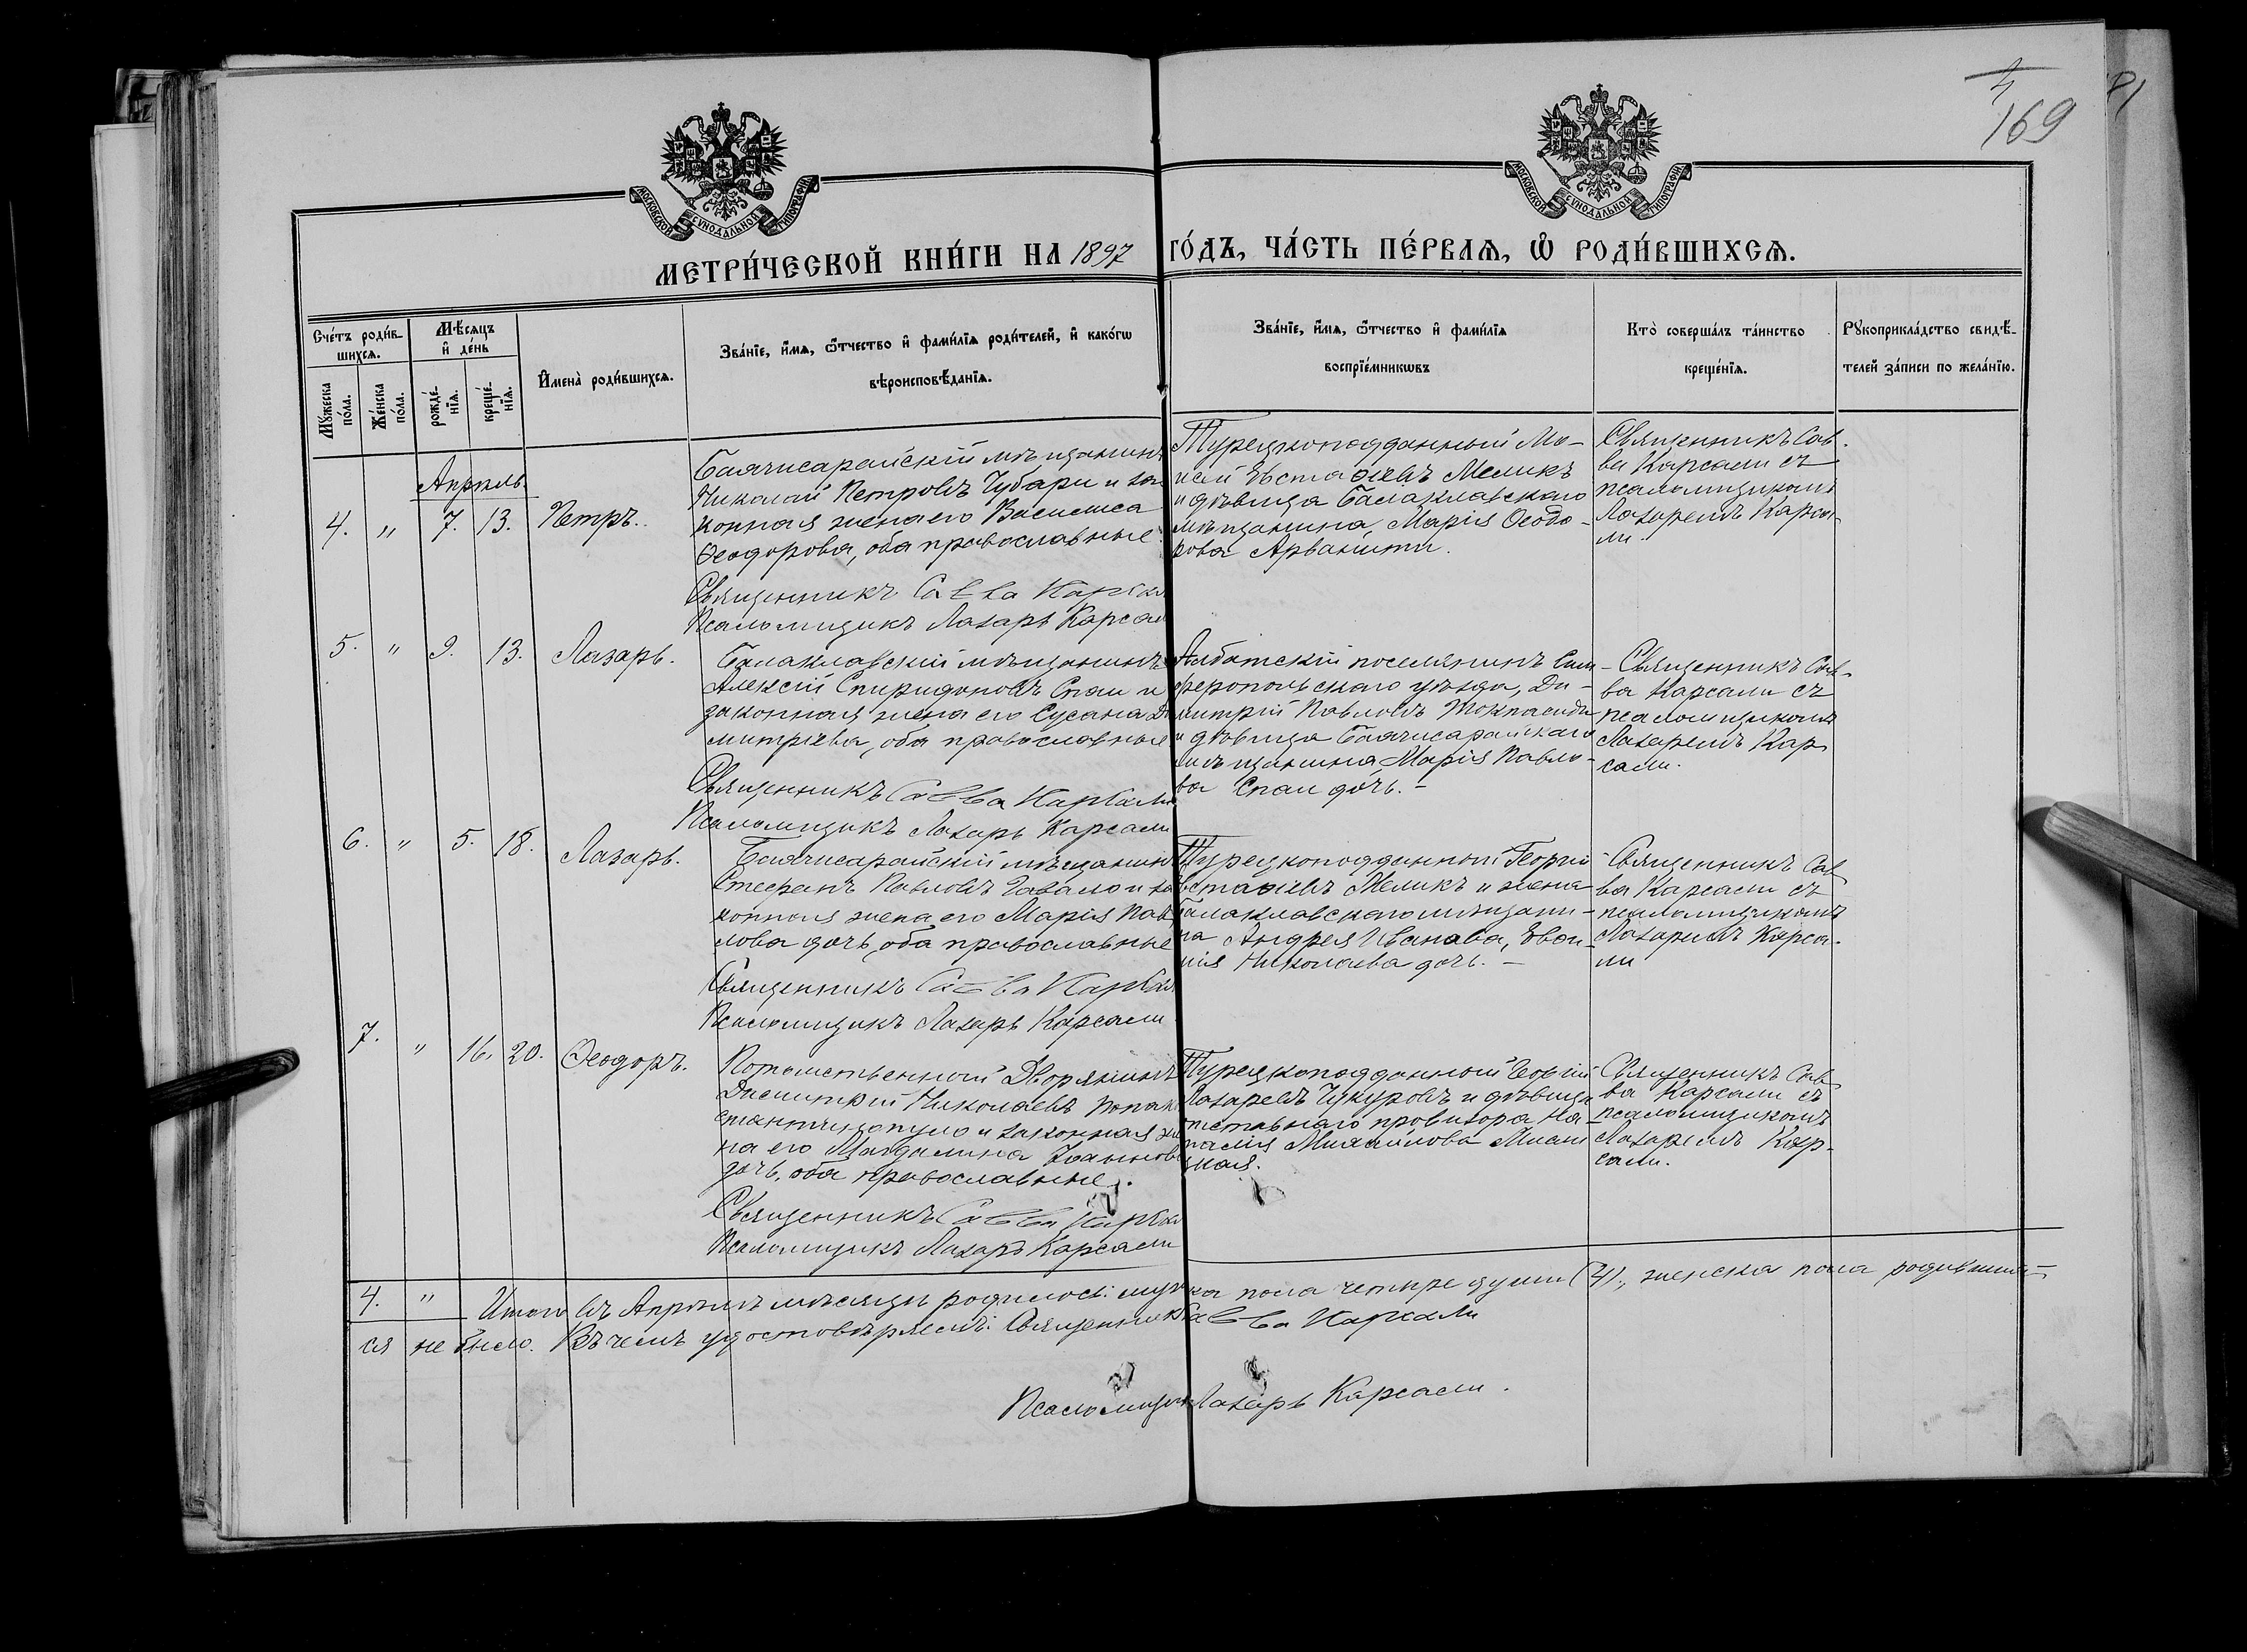 4
169
МОСКОВСКОЙ СѴНОДАЛЬНОЙ ТИПОГРАФІИ
МОСКОВСКОЙ СѴНОДАЛЬНОЙ ТИПОГРАФІИ
МЕТРИ́ЧЕСКОЙ КНИ́ГИ НА 1897 ГО́ДЪ, ЧА́СТЬ ПЕ́РВАѦ, Ѡ РОДИ́ВШИХСѦ.
Сче́тъ роди́в-
шихсѧ.
Мꙋ́жеска
по́ла.
Же́нска
по́ла.
Мѣ́сяцъ
и҆ де́нь
рожде́-
нїѧ.
креще́-
нїѧ.
И҆мена̀ роди́вшихсѧ.
Зва́нїе, и҆́мѧ, ѻ҆́тчество и҆ фами́лїѧ роди́телей, и҆ како́гѡ
вѣроисповѣ́данїѧ.
Зва́нїе, и҆́мѧ, ѻ҆́тчество и҆ фами́лїѧ
воспрїе́мникѡвъ
Кто̀ соверша́лъ та́инство
креще́нїѧ.
Рꙋкоприкла́дство свидѣ́-
телей за́писи по жела́нїю.
Апрѣль
4. " 7. 13. Петръ.
Бахчисарайскій мѣщанинъ
Николай Петровъ Чубари и за-
конная жена его Василиса
Ѳеодорова, оба православные
Священникъ Савва Карсал
Псаломщикъ Лазарь Карсал
Турецкоподданный Мо-
исей Евстаѳіевъ Меликъ
и дѣвица Балаклавскаго
мѣщанина Марія Ѳеодо-
рова Арваніити.
Священникъ Сав-
ва Карсали съ
псаломщикомъ
Лазаремъ Карса-
ли.
5. " 9. 13. Лазарь.
Балаклавскій мѣщанинъ
Алексій Спиридоновъ Спаи и
законная жена его Сусана Ди
митріева, оба православные
Священникъ Савва Карсали
Псаломщикъ Лазарь Карсали
Албатскій поселянинъ Сим-
феропольскаго уѣзда, Ди-
митрій Павловъ
и дѣвица Бахчисарайскаго
мѣщанина Марія Павло-
ва Спаи дочь. -
Священникъ Сав-
ва Карсали съ
псаломщикомъ
Лазаремъ Кар-
сали.
6. " 5. 18. Лазарь.
Бахчисарайскій мѣщанинъ
Стефанъ Павловъ Гавало и за
конная жена его Марія Пав
лова дочь, оба православные
Священникъ Савва Карсал
Псаломщикъ Лазарь Карсали
Турецкоподданной Георгій
Евстаѳіевъ Меликъ и жена
балаклавскаго мѣщани-
на Андрея Иванова, Евѳи-
мія Николаева дочь. -
Священникъ Сав-
ва Карсали съ
псаломщикомъ
Лазаремъ Карса-
ли
7. " 16. 20. Ѳеодоръ.
Потомственной Дворянинъ
Димитрій Николаевъ Попако
стантинопуло и законная же
на его Магдалина Іоаннова
дочь, оба православные.
Священникъ Савва Карсал
Псаломщикъ Лазарь Карсали
Турецкоподданной
Лазаревъ Чукуровъ и дѣвица
отставнаго провизора На-
талія Михайлова
Священникъ Сав-
ва Карсали съ
псаломщикомъ
Лазаремъ Кар-
сали.
4. " Итого въ Апрѣлѣ мѣсяцѣ родилось: муж ка пола четыре души (4), женска пола родивших-
ся не было. Въ чемъ удостовѣряемъ: Священникъ Савва Карсали
Псаломщик Лазарь Карсали.